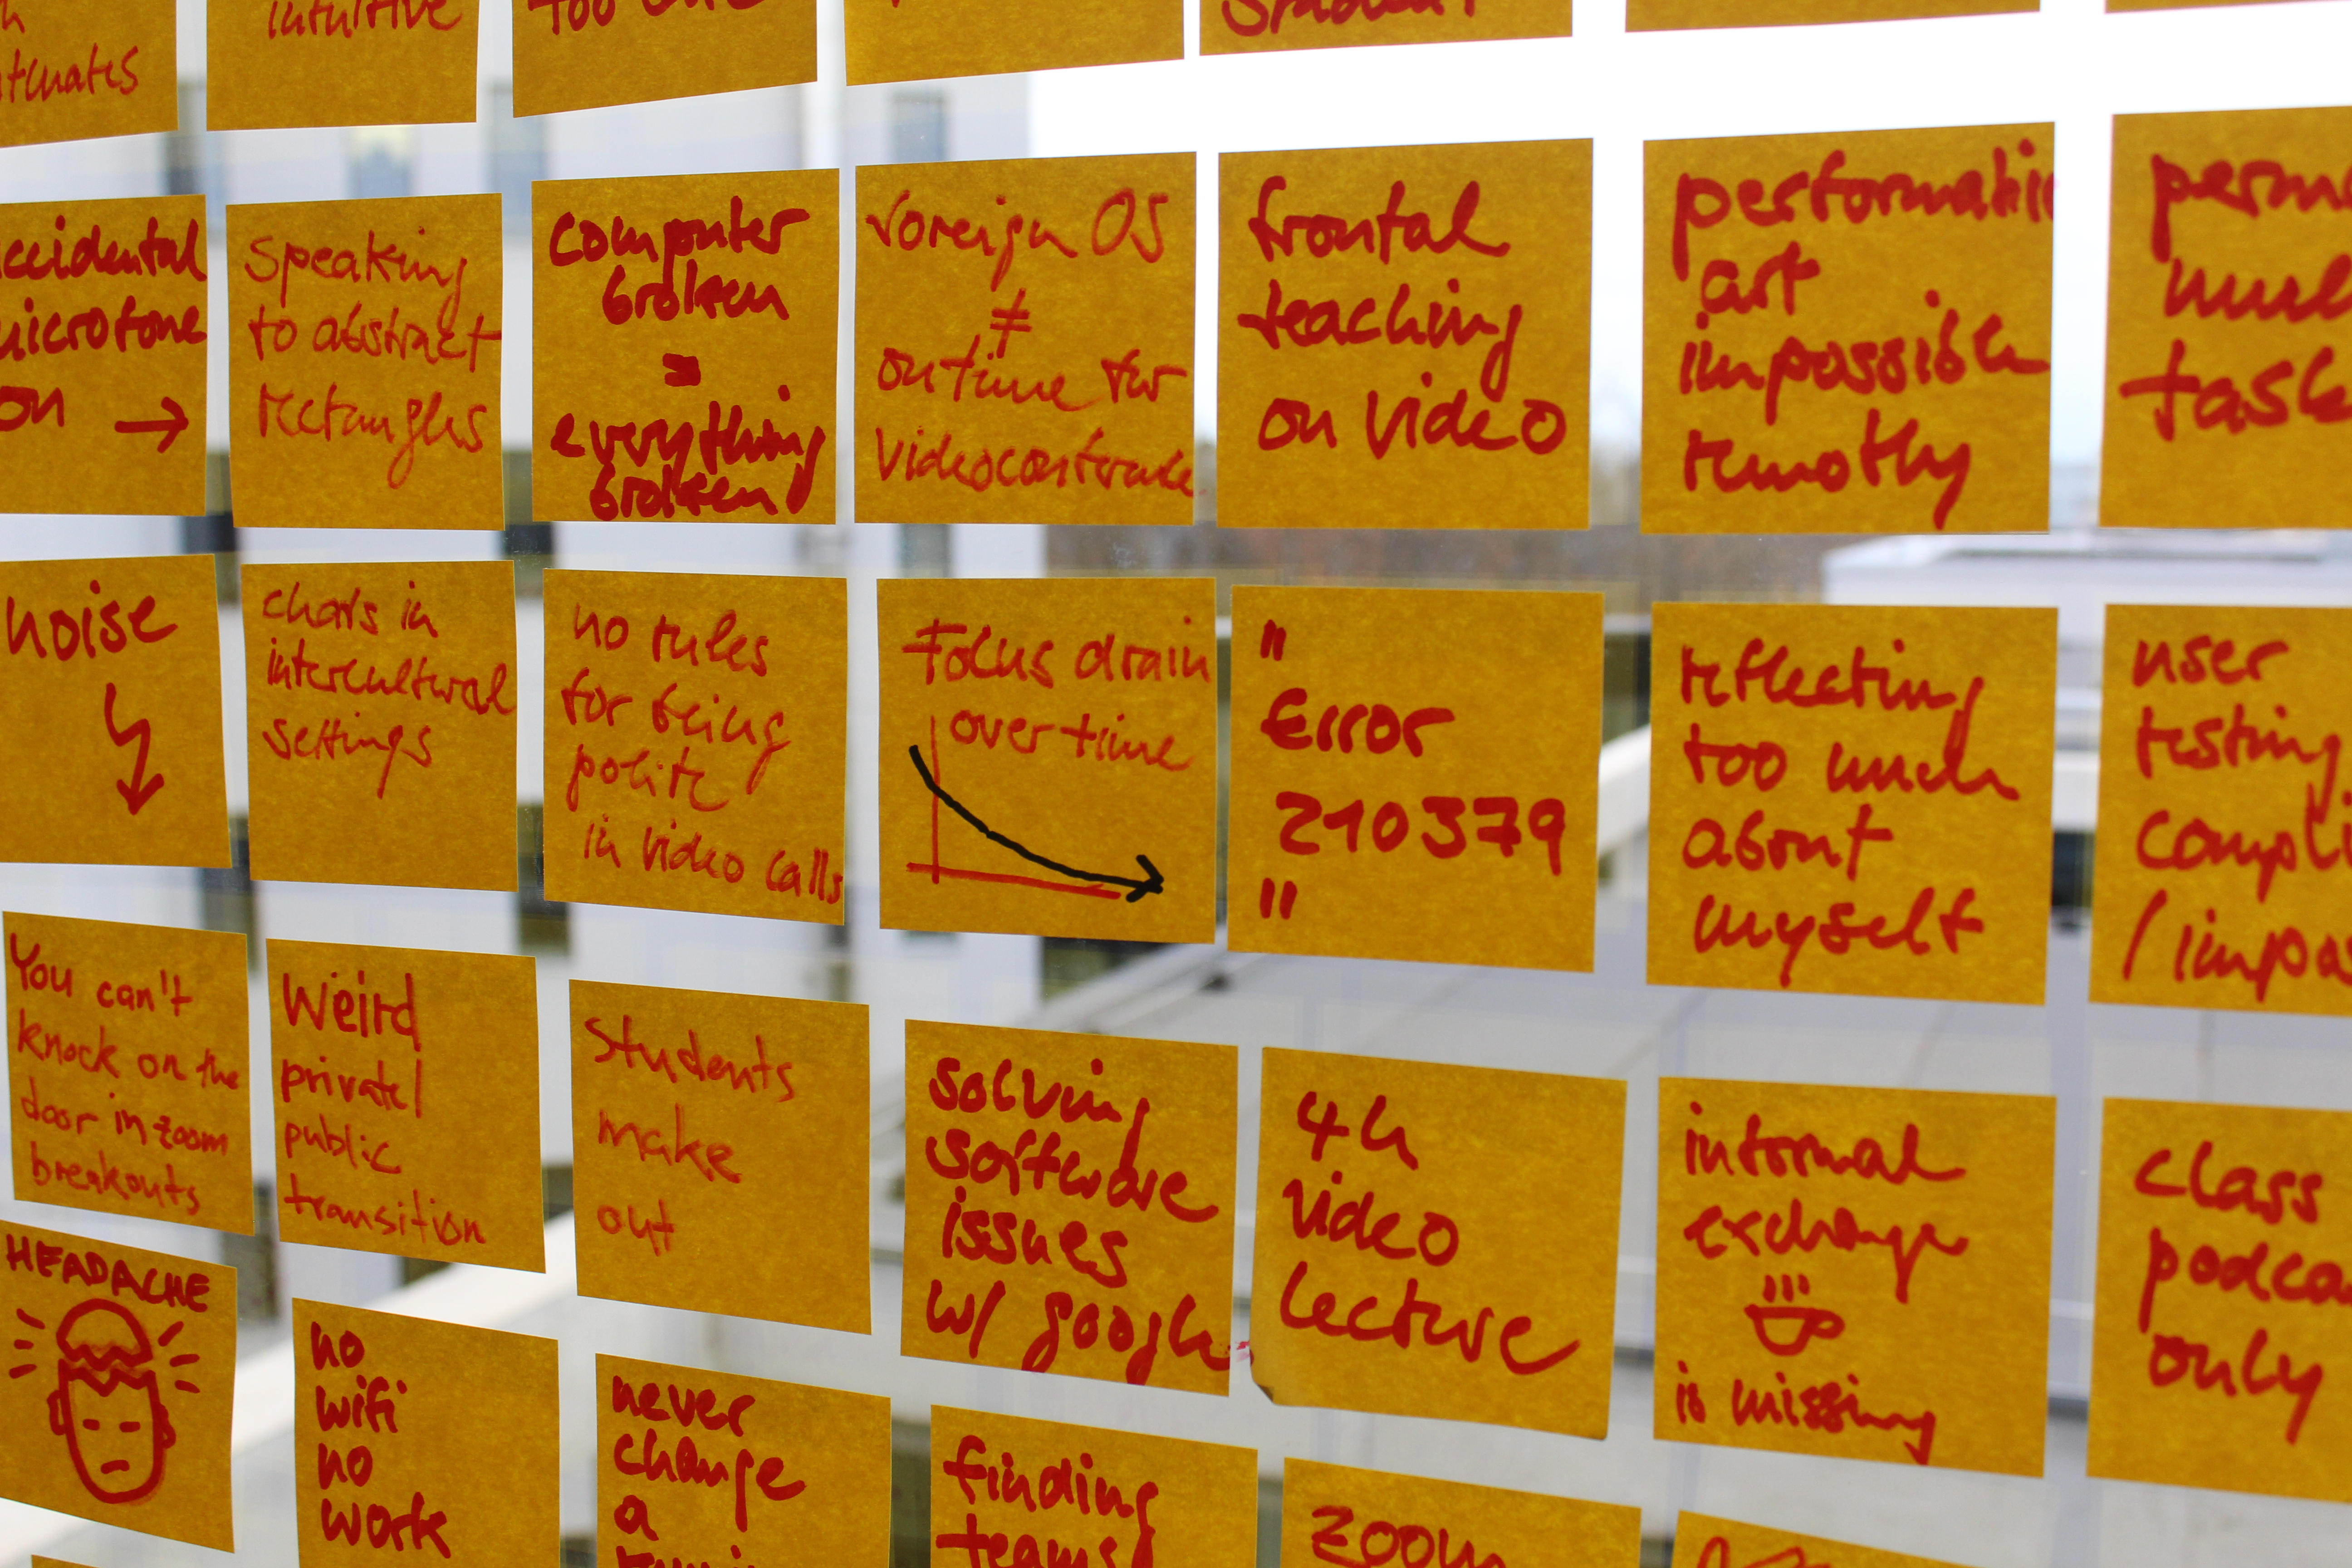 intuitive
too
student
ccidental
microfone
on →
Speaking
to abstract
rectangles
computer
broken
=
everything
broken!
voreign OS
≠
ontime for
frontal
teaching
on video
art
impossible
remotly
noise
chats in
intercultural
settings
no rules
for being
polite
in video calls
Focus drain
over time
"
Error
210379
"
reflecting
too much
about
myself
user
testing
You can't
knock on the
door in zoom
breakouts
Weird
private/
public
transition
Students
make
out
solving
software
issues
w/ google
4h
video
lecture
informal
exchange
is missing
class
only
HEADACHE
no
wifi
no
work
never
change
a
finding
teams
zoom